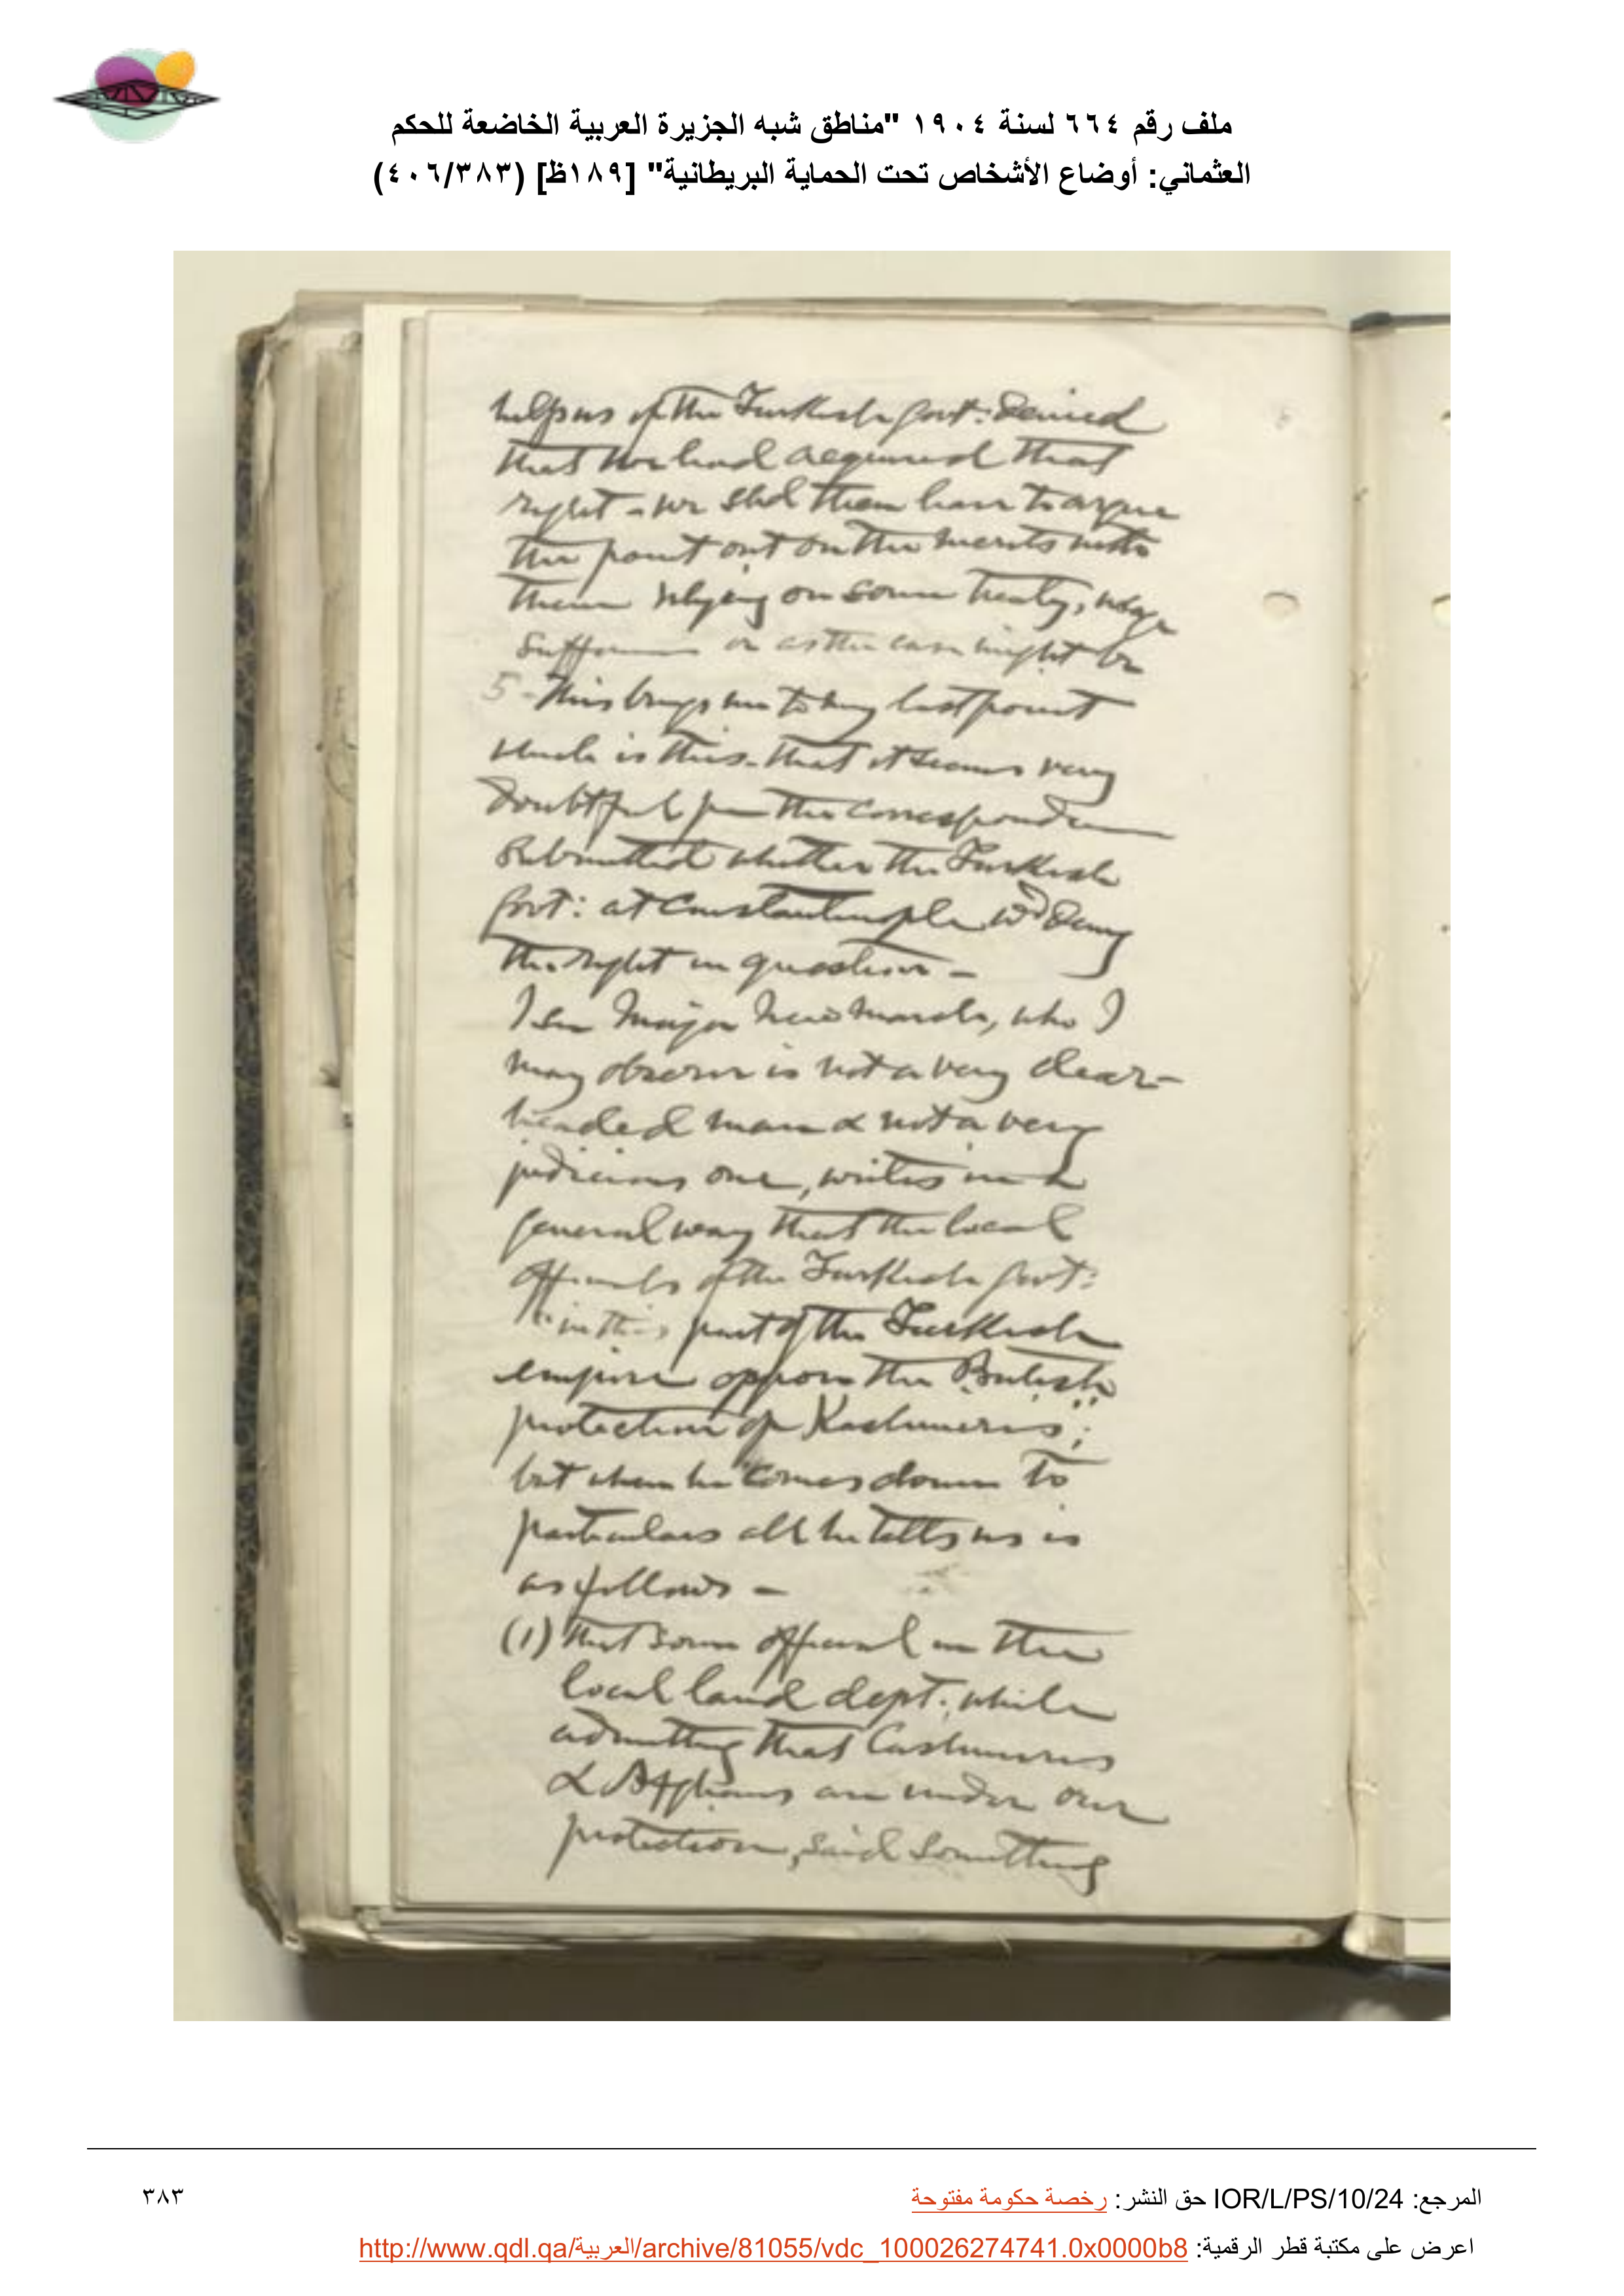 ملف رقم ٦٦٤ لسنة ١٩٠٤ "مناطق شبه الجزيرة العربية الخاضعة للحكم
العثماني: أوضاع الأشخاص تحت الحماية البريطانية" [١٨٩ظ] (٤٠٦/٣٨٣)
help us if the Turkish Govt: denied
that we had acquired that
right - we shd then have to argue
the point out on the merits with
them relying on some treaty, usage
sufferance or as the case might be
5 - This brings me to my last point
which is this - that it seems very
doubtful from the correspondence
submitted whether the Turkish
Govt: at Constantinople wd deny
the right in question -
I see Major Newmarch, who I
may observe is not a very clear-
headed man & not a very
judicious one, writes in a
general way that the local
officials of the Turkish Govt:
in this part of the Turkish
empire oppose the British
protection of Kashmeris;
but when he comes down to
particulars all he tells us is
as follows -
(1) that some official in the
local land dept: while
admitting that Cashmeris
& Afghans are under our
protection, said something
المرجع: IOR/L/PS/10/24 حق النشر: رخصة حكومة مفتوحة
٣٨٣
اعرض على مكتبة قطر الرقمية: http://www.qdl.qa/العربية/archive/81055/vdc_100026274741.0x0000b8